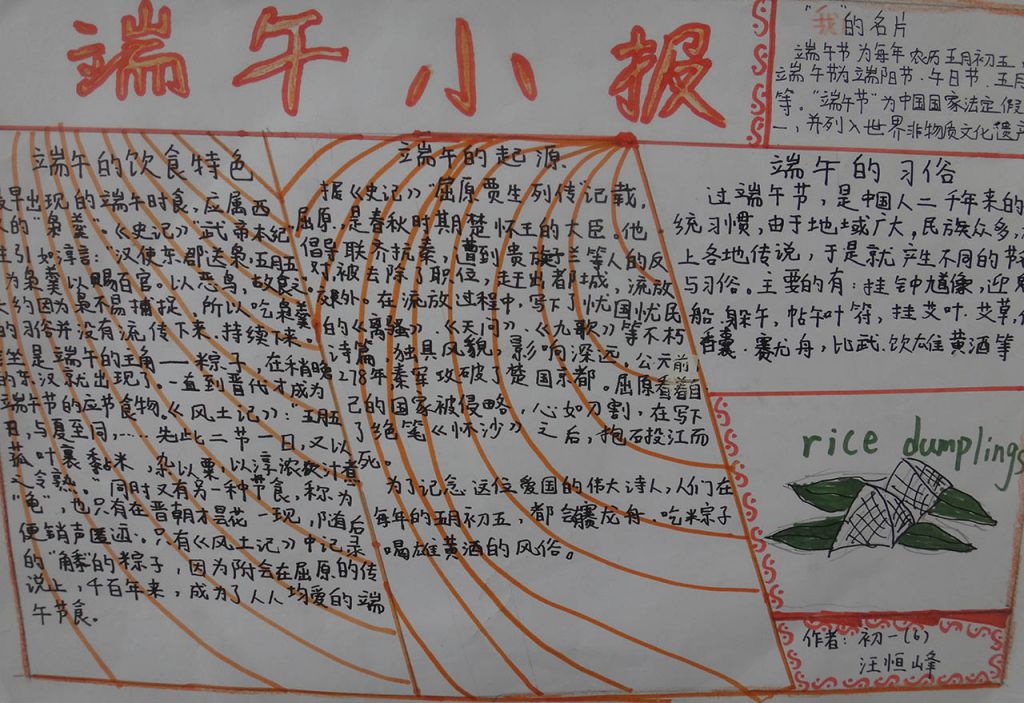 端午小报
"我"的名片
端午节为每年农历五月初五
端午节为端阳节.午日节.五月
等。"端午节"为中国国家法定假
一,并列入世界非物质文化遗产
端午的饮食特色
最早出现的端午时食,应属西
的"枭羹"。《史记》"武帝本纪
引如淳言:"汉使东郡送枭,五月五
为枭羹以赐百官。以恶鸟,故食之。
大约因为枭不易捕捉,所以吃枭羹
的习俗并没有流传下来,持续下来。
是端午的主角——粽子,在稍晚
的东汉就出现了。一直到晋代才成为
端午节的应节食物。《风土记》:"五月五
日,与夏至同,……先此二节一日,又以
菰叶裹黏米,杂以粟,以淳浓灰汁煮
之令熟。"同时又有另一种节食,称为
"龟",也只有在晋朝才昙花一现,随后
便销声匿迹。只有《风土记》中记录
的"角黍"的粽子,因为附会在屈原的传
说上,千百年来,成为了人人均爱的端
午节食.
端午的起源.
据《史记》"屈原贾生列传"记载,
屈原,是春秋时期楚怀王的大臣。他
倡导联齐抗秦,遭到贵族子兰等人的反
对,被去除了职位,赶出都城,流放
外。在流放过程中,写下了忧国忧民
的《离骚》、《天问》、《九歌》等不朽
诗篇,独具风貌,影响深远。公元前
278年秦军攻破了楚国京都。屈原看着自
己的国家被侵略,心如刀割,在写下
了绝笔《怀沙》之后,抱石投江而
死。
为了记念这位爱国的伟大诗人,人们在
每年的五月初五,都会赛龙舟.吃米粽子
喝雄黄酒的风俗。
端午的习俗
过端午节,是中国人二千年来的
统习惯,由于地域广大,民族众多,
上各地传说,于是就产生不同的节
与习俗。主要的有:挂钟馗像,迎鬼
船,躲午,帖午叶符,挂艾叶.艾草,
香囊.赛龙舟,比武.饮雄黄酒等
rice dumplings
作者:初一(6)
汪恒峰